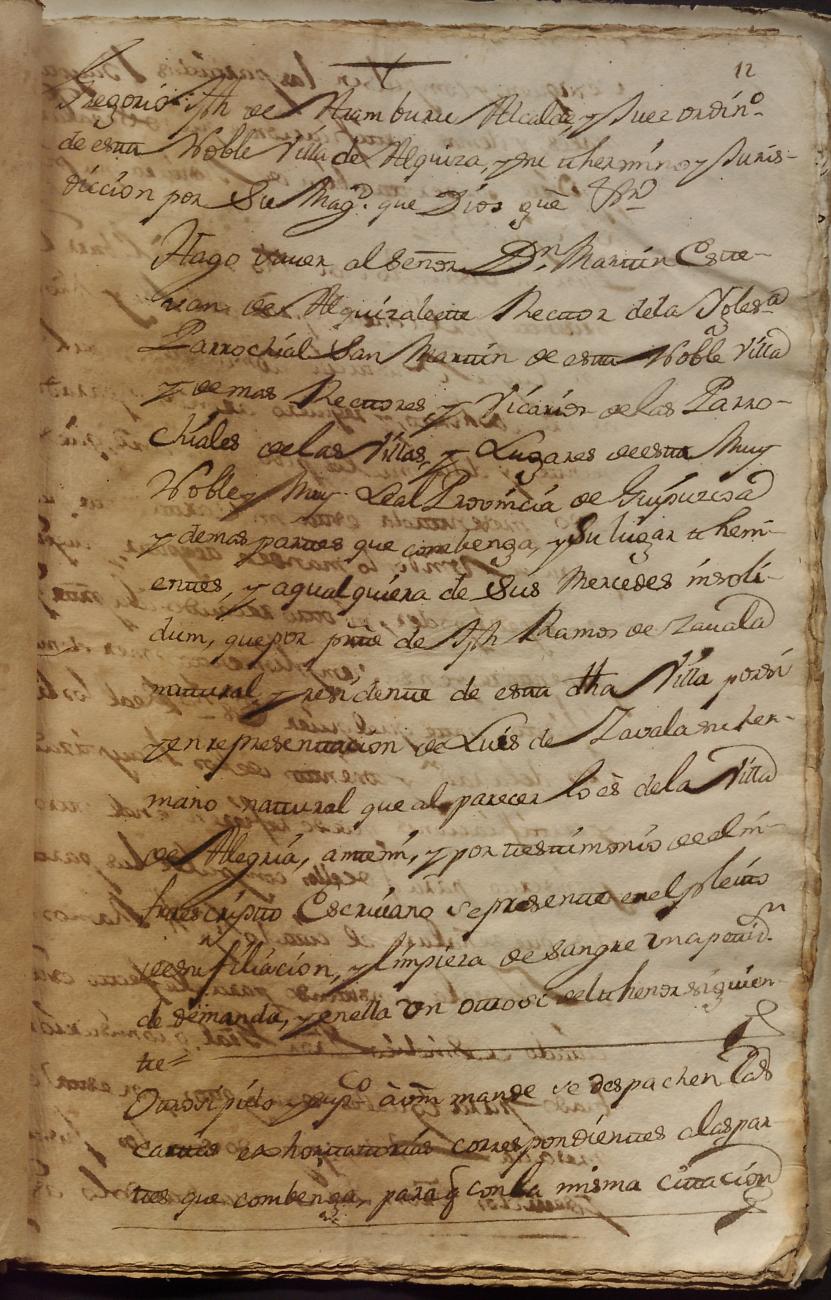 12
Gregorio Jph de Aramburu Alcalde, y Juez ordinº
de esta Noble Villa de Alquiza, y su thermino y Juris-
diccion por Su Magd. que Dios gue &ra
Hago saver al Señor Dn. Martin Este-
van de Alquizalete Rector dela Yglesa
Parrochial San Martin de esta Noble Villa
y demas Rectores, y Vicarios de las Parro-
chiales de las Villas, y Lugares de esta Muy
Noble y Muy Leal Provincia de Guipuzcoa
y demas partes que combenga, y Su lugar theni-
entes, y a qualquiera de Sus Mercedes insoli-
dum, que por pate de Jph Ramos de Zavala
natural y residente de esta dha Villa por si
y en representacion de Luis de Zavala su her-
mano natural que al parecer lo es dela Villa
de Alegria, antemi, y por testimonio de el in-
fraescripto Escrivano se presento en el pleito
de su filiacion, y limpieza de sangre una petin.
de demanda, y en ella un otrosi del thenor siguien-
te=
Otrosi pido y supco à vm mande se despachen las
cartas exhortatorias correspondientes a las par
tes que combenga, para q con la misma citacion